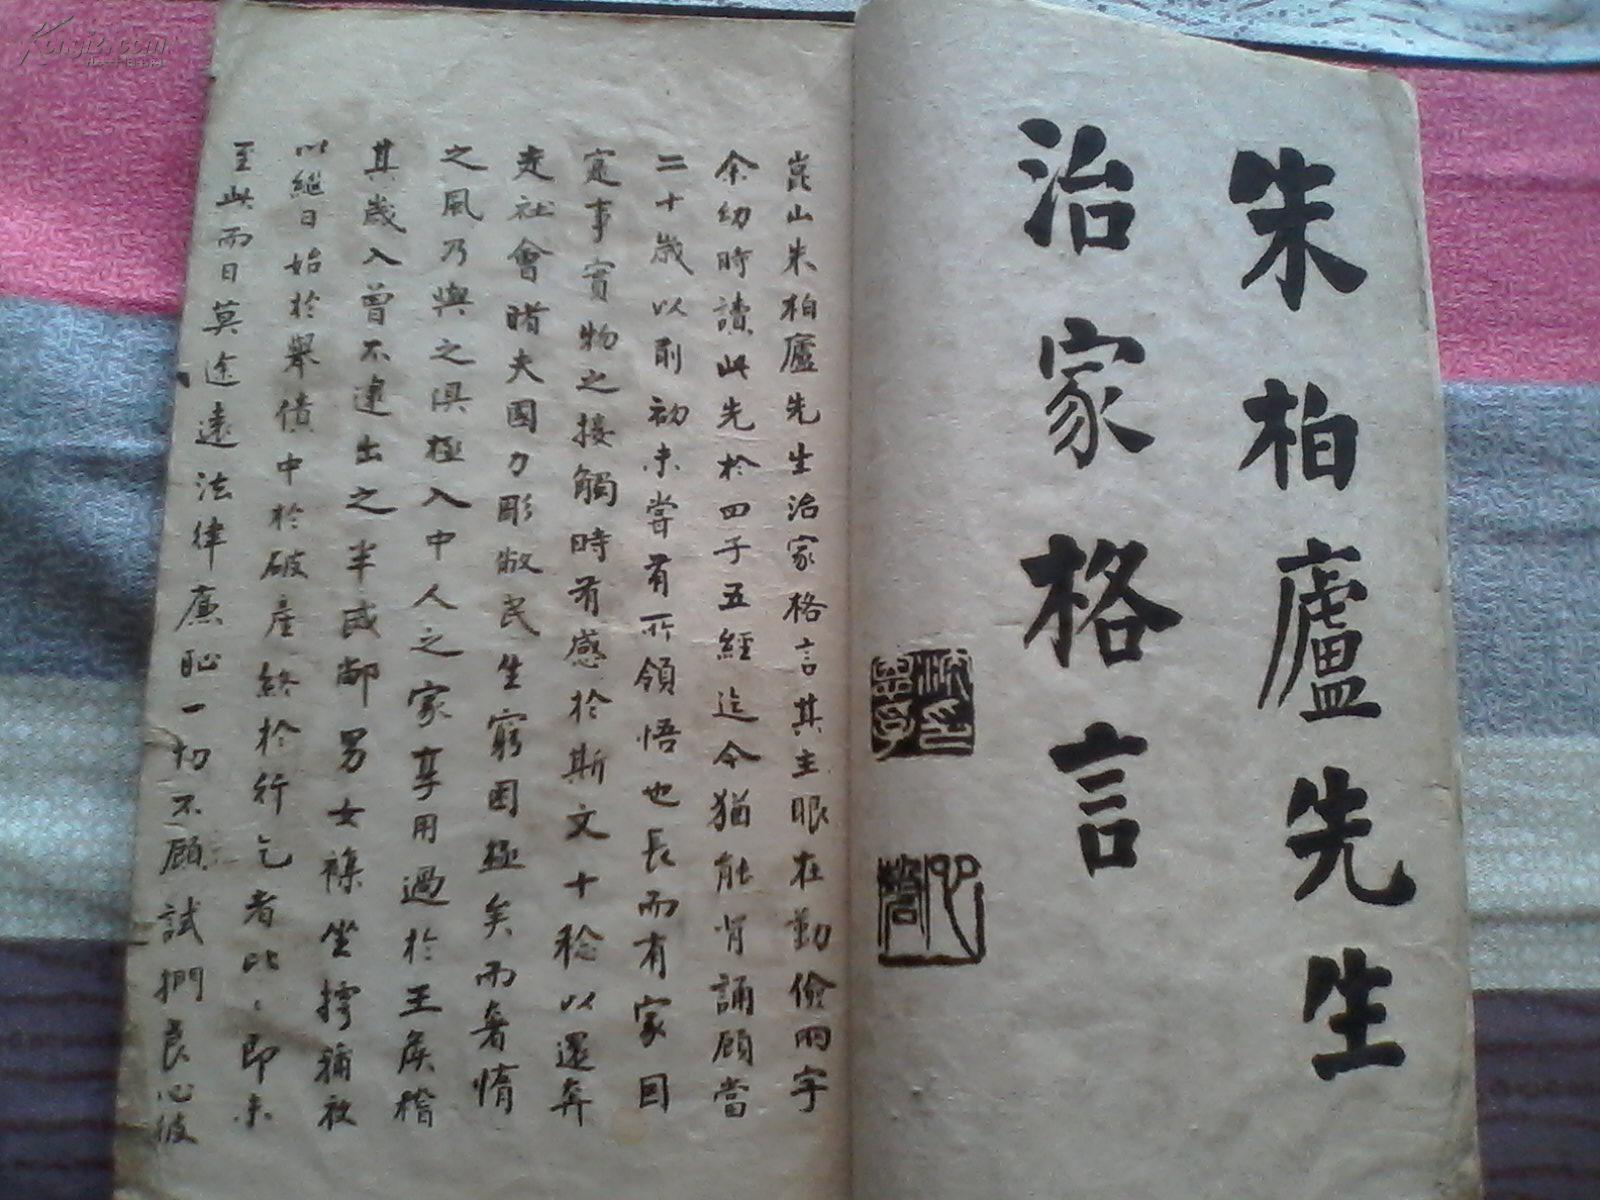 朱柏廬先生
治家格言
崑山朱柏廬先生治家格言其主眼在勤儉兩字
余幼時讀此先於四子五經迄今猶能背誦顧當
二十歲以前初未嘗有所領悟也長而有家目
寔事實物之接觸時有感於斯文十稔以還奔
走社會睹夫國力彫敝民生窮困極矣而奢惰
之風乃與之俱極入中人之家享用過於王侯稽
其歲入曾不逮出之半或鄰男女褓坐摴蒱夜
以繼日始於舉債中於破產終於行乞者比比即未
至此而日莫途遠法律廉恥一切不顧試捫良心彼
Kongfz.com